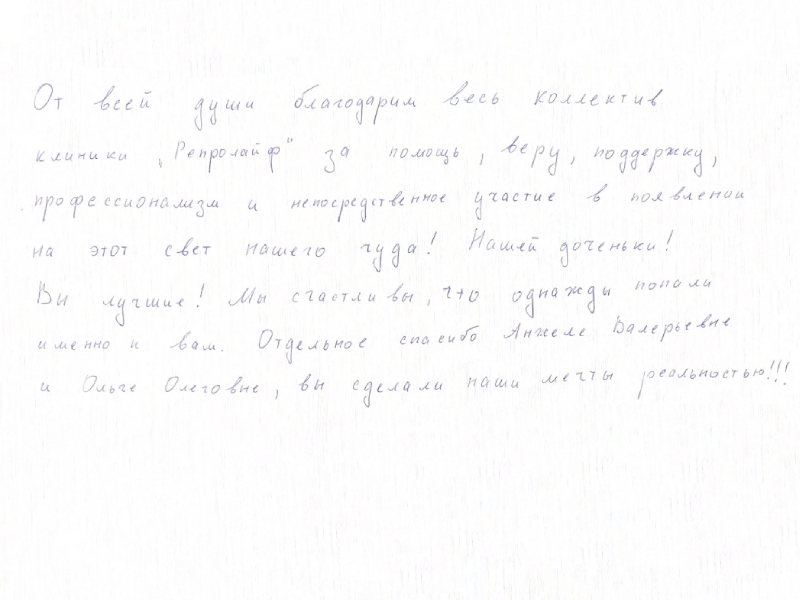 От всей души благодарим весь коллектив
клиники „Репролайф" за помощь, веру, поддержку,
профессионализм и непосредственное участие в появлении
на этот свет нашего чуда! Нашей доченьки!
Вы лучшие! Мы счастливы, что однажды попали
именно к вам. Отдельное спасибо Анжеле Валерьевне
и Ольге Олеговне, вы сделали наши мечты реальностью!!!